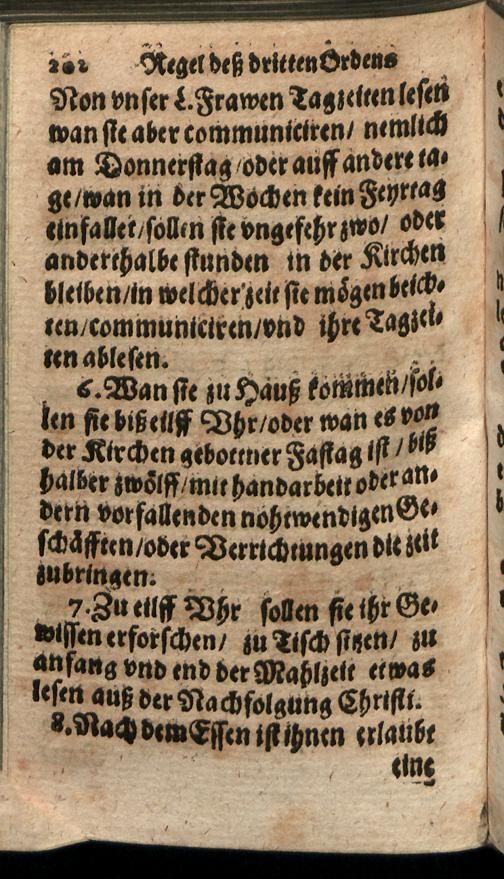 202 Regel deß dritten Ordens
Non vnser L. Frawen Tagzeiten lesen
wan sie aber communiciren/ nemlich
am Donnerstag/oder auff andere ta-
ge/wan in der Wochen kein Feyrtag
einfallet/sollen sie vngefehr zwo/ oder
anderthalbe stunden in der Kirchen
bleiben/in welcher zeit sie mögen beich-
ten/communiciren/vnd ihre Tagzei-
ten ablesen.
6. Wan sie zu Hauß kommen/sol-
len sie biß eilff Vhr/oder wan es von
der Kirchen gebottner Fastag ist/ biß
halber zwölff/mit handarbeit oder an-
dern vorfallenden nohtwendigen Ge-
schäfften/oder Verrichtungen die zeit
zubringen.
7. Zu eilff Vhr sollen sie ihr Ge-
wissen erforschen/ zu Tisch sitzen/ zu
anfang vnd end der Mahlzeit etwas
lesen auß der Nachfolgung Christi.
8. Nach dem Essen ist ihnen erlaubt
eine